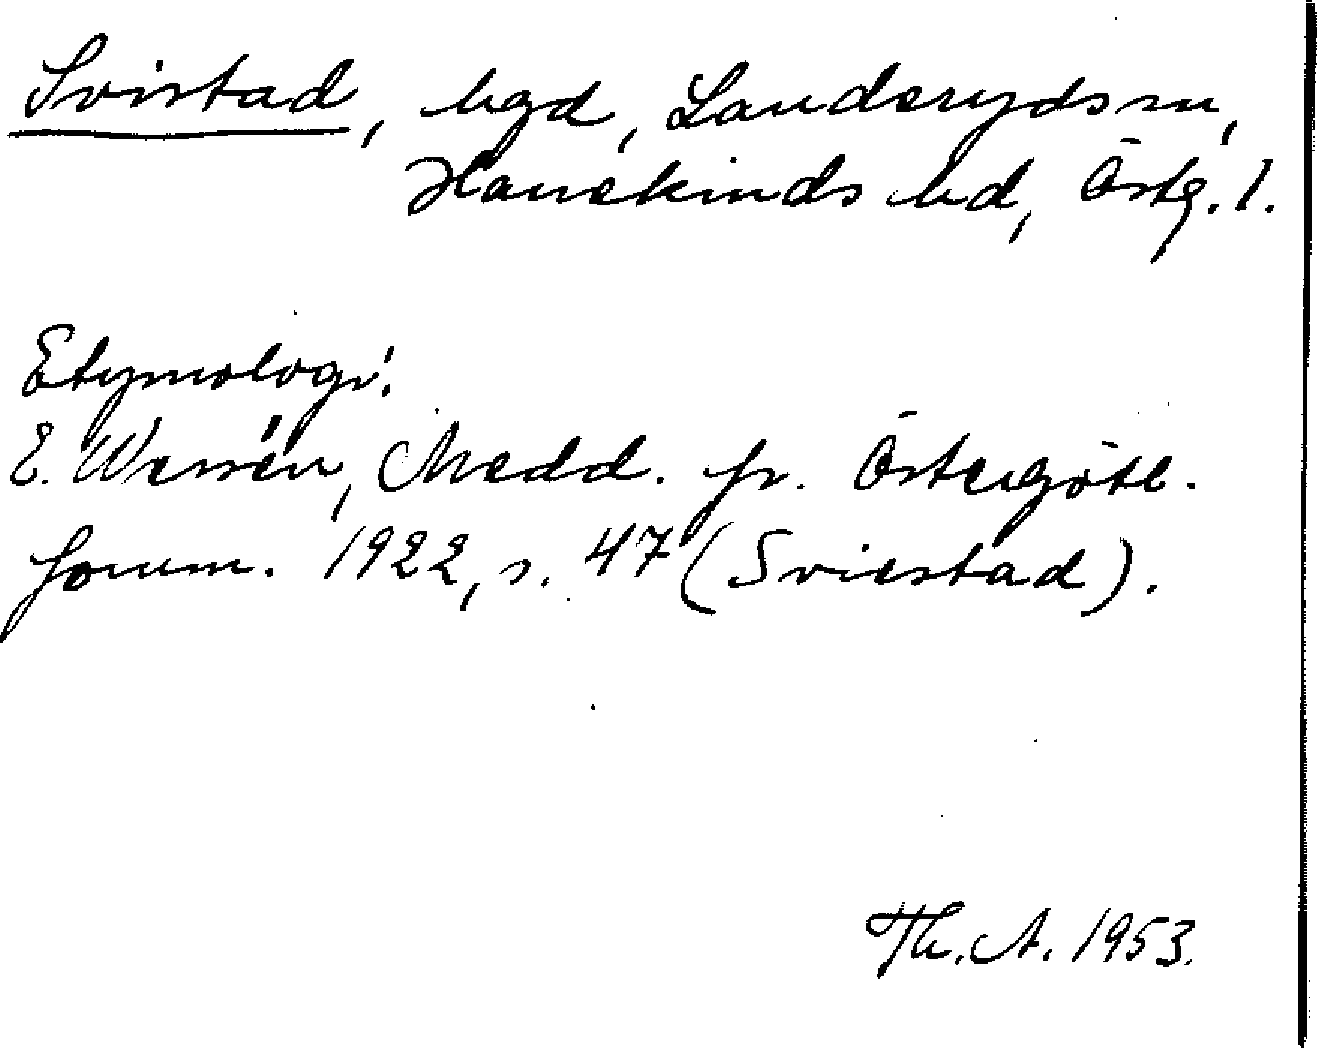 Svistad, bgd, Landeryds sn,
Hanekinds hd, Östg. l.
Etymologi:
E. Wessén, Medd. fr. Östergötl.
fornm. 1922, s. 47 (Sviestad).
Th. A. 1953.